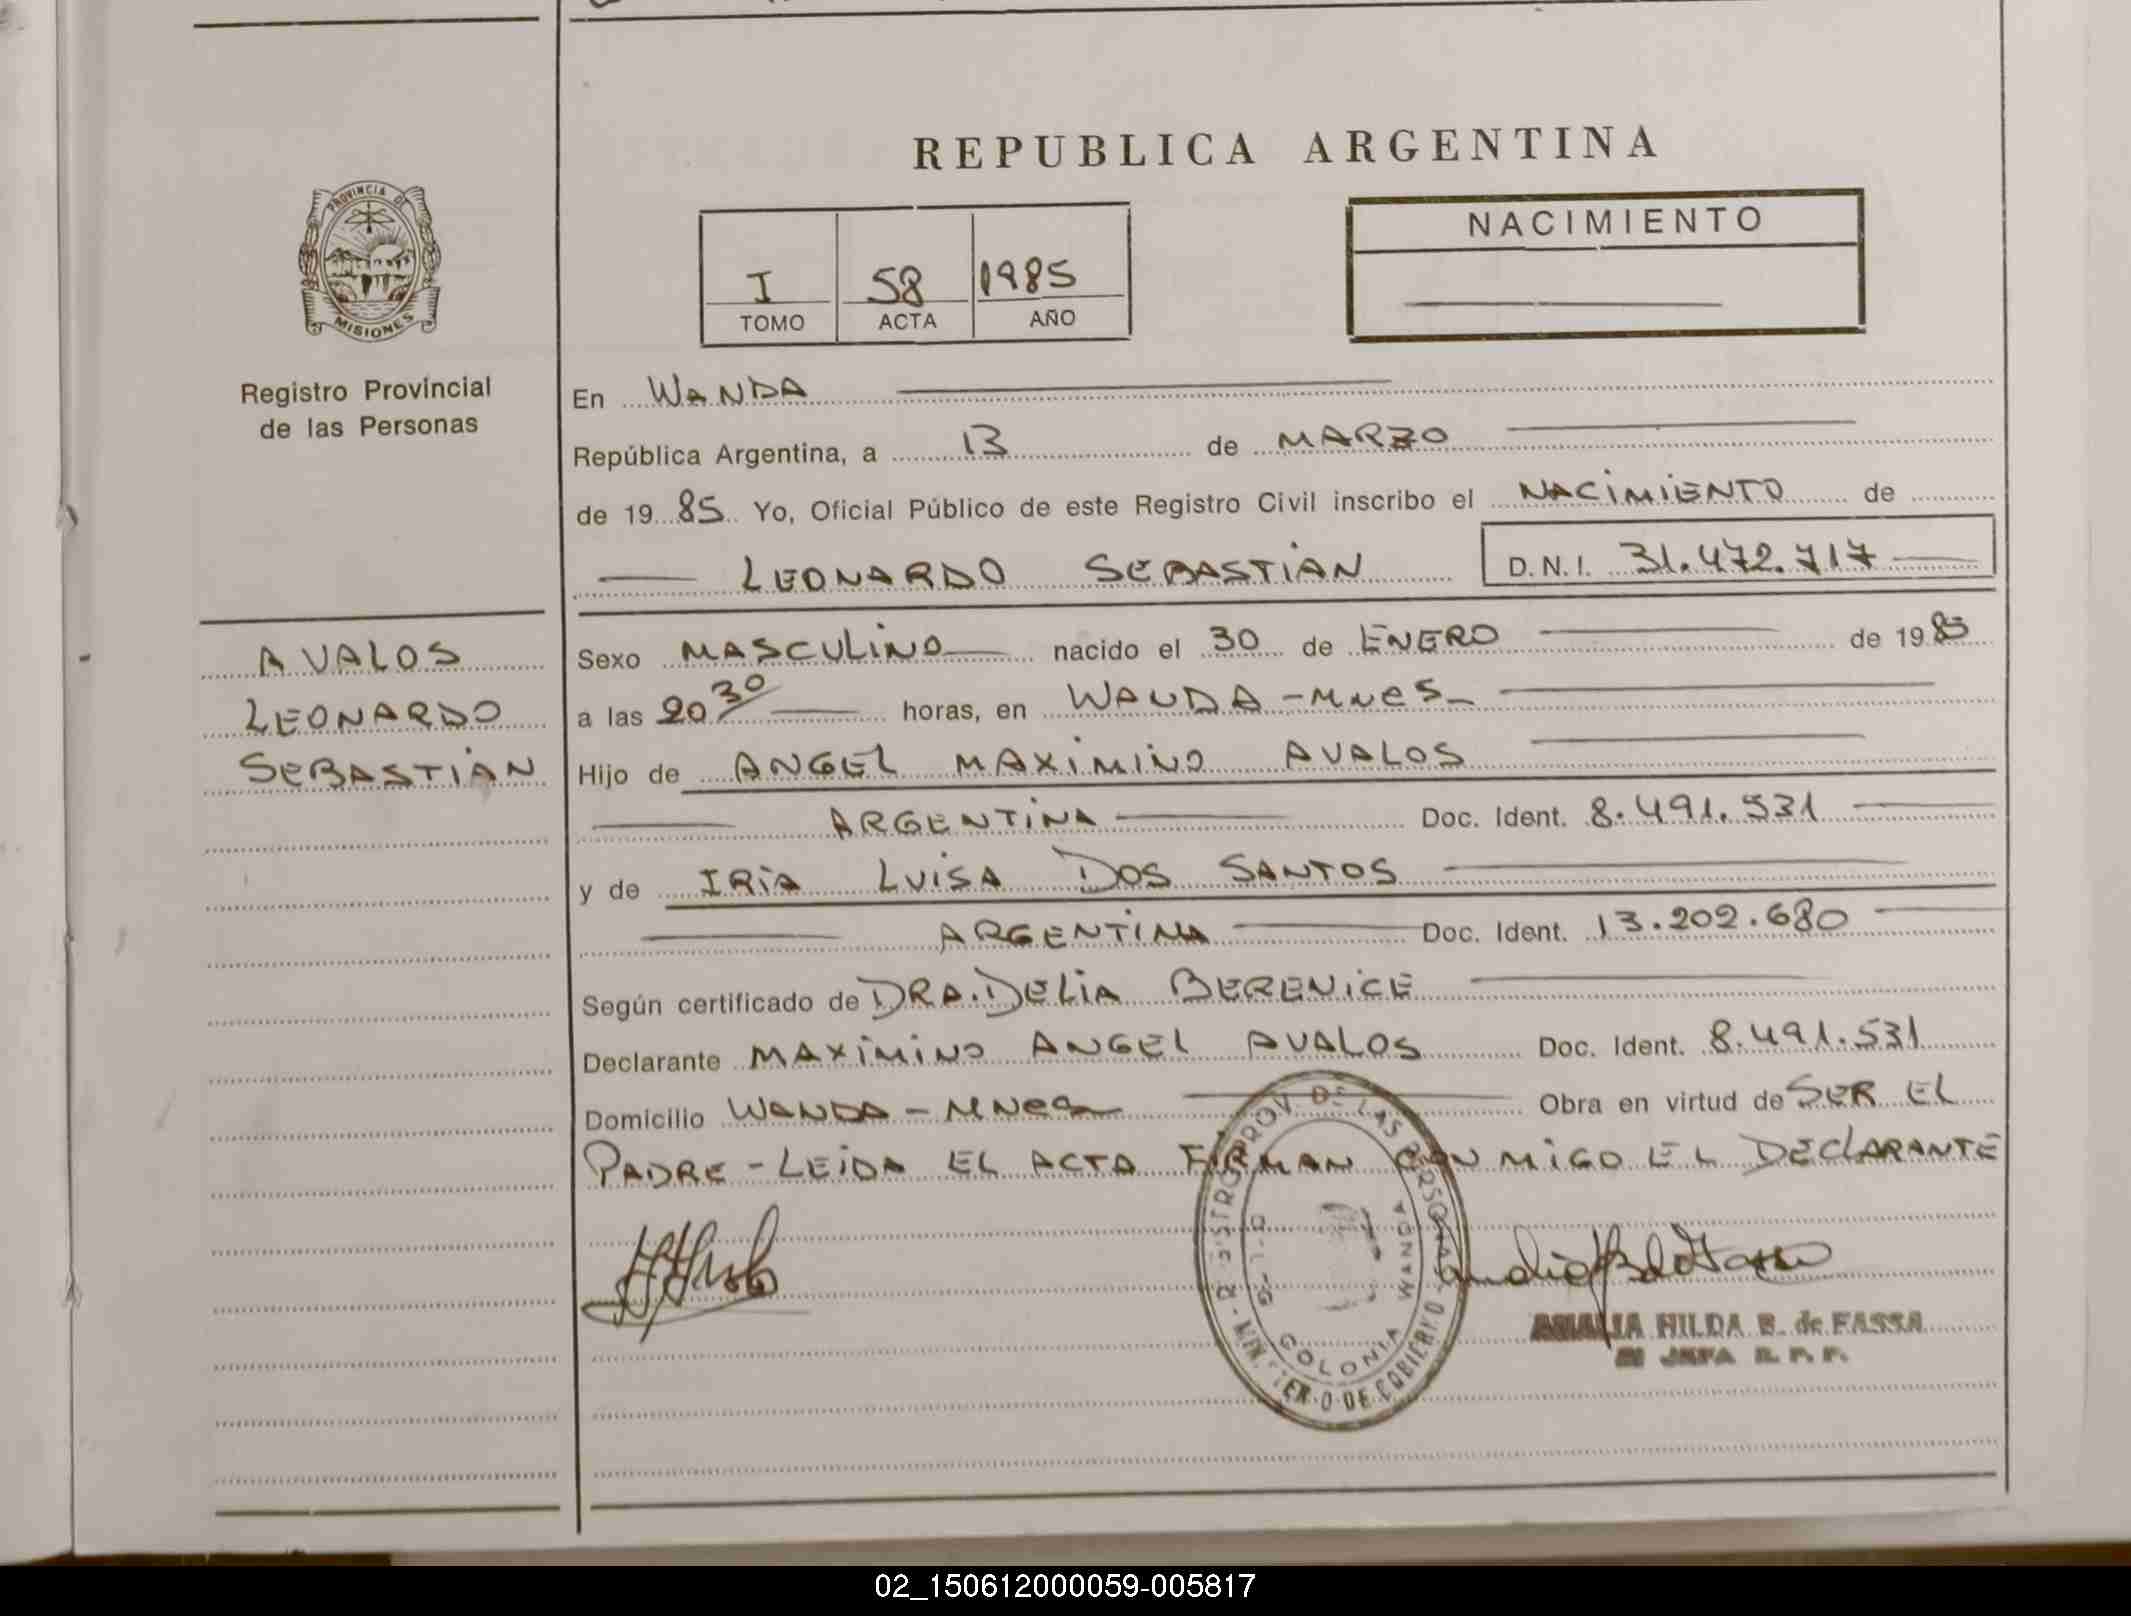 REPUBLICA ARGENTINA
PROVINCIA DE MISIONES
Registro Provincial
de las Personas
I 58 1985
TOMO ACTA AÑO
NACIMIENTO
En WANDA
República Argentina, a 13 de MARZO
de 1985 Yo, Oficial Público de este Registro Civil inscribo el NACIMIENTO de
LEONARDO SEBASTIAN D.N.I. 31.472.717
AVALOS
LEONARDO
SEBASTIAN
Sexo MASCULINO nacido el 30 de ENERO de 1985
a las 20 30 horas, en WANDA - MNES
Hijo de ANGEL MAXIMINO AVALOS
ARGENTINA Doc. Ident. 8.491.531
y de IRIA LUISA DOS SANTOS
ARGENTINA Doc. Ident. 13.202.680
Según certificado de DRA. DELIA BERENICE
Declarante MAXIMINO ANGEL AVALOS Doc. Ident. 8.491.531
Domicilio WANDA - MNES Obra en virtud de SER EL
PADRE - LEIDA EL ACTA FIRMAN CON MIGO EL DECLARANTE
PROV DE LAS PERSONAS
MINISTERIO DE GOBIERNO
COLONIA WANDA
AMALIA HILDA B. de FASSA
JEFA R. P. P.
02_150612000059-005817